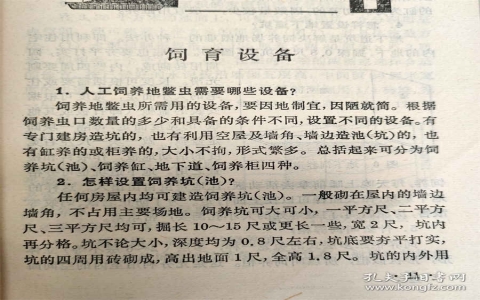 饲育设备
1. 人工饲养地鳖虫需要哪些设备?
饲养地鳖虫所需用的设备,要因地制宜,因陋就简。根据
饲养虫口数量的多少和具备的条件不同,设置不同的设备。有
专门建房造坑的,也有利用空屋及墙角、墙边造池(坑)的,也
有缸养的或柜养的,大小不拘,形式繁多。总括起来可分为饲
养坑(池)、饲养缸、地下道、饲养柜四种。
2. 怎样设置饲养坑(池)?
任何房屋内均可建造饲养坑(池)。一般砌在屋内的墙边
墙角,不占用主要场地。饲养坑可大可小,一平方尺、二平方
尺、三平方尺均可,掘长10～15尺或更长一些,宽2尺,坑内
再分格。坑不论大小,深度均为0.8尺左右,坑底要夯平打实,
坑的四周用砖砌成,高出地面1尺,全高1.8尺。坑的内外用
· 11 ·
孔夫子旧书网